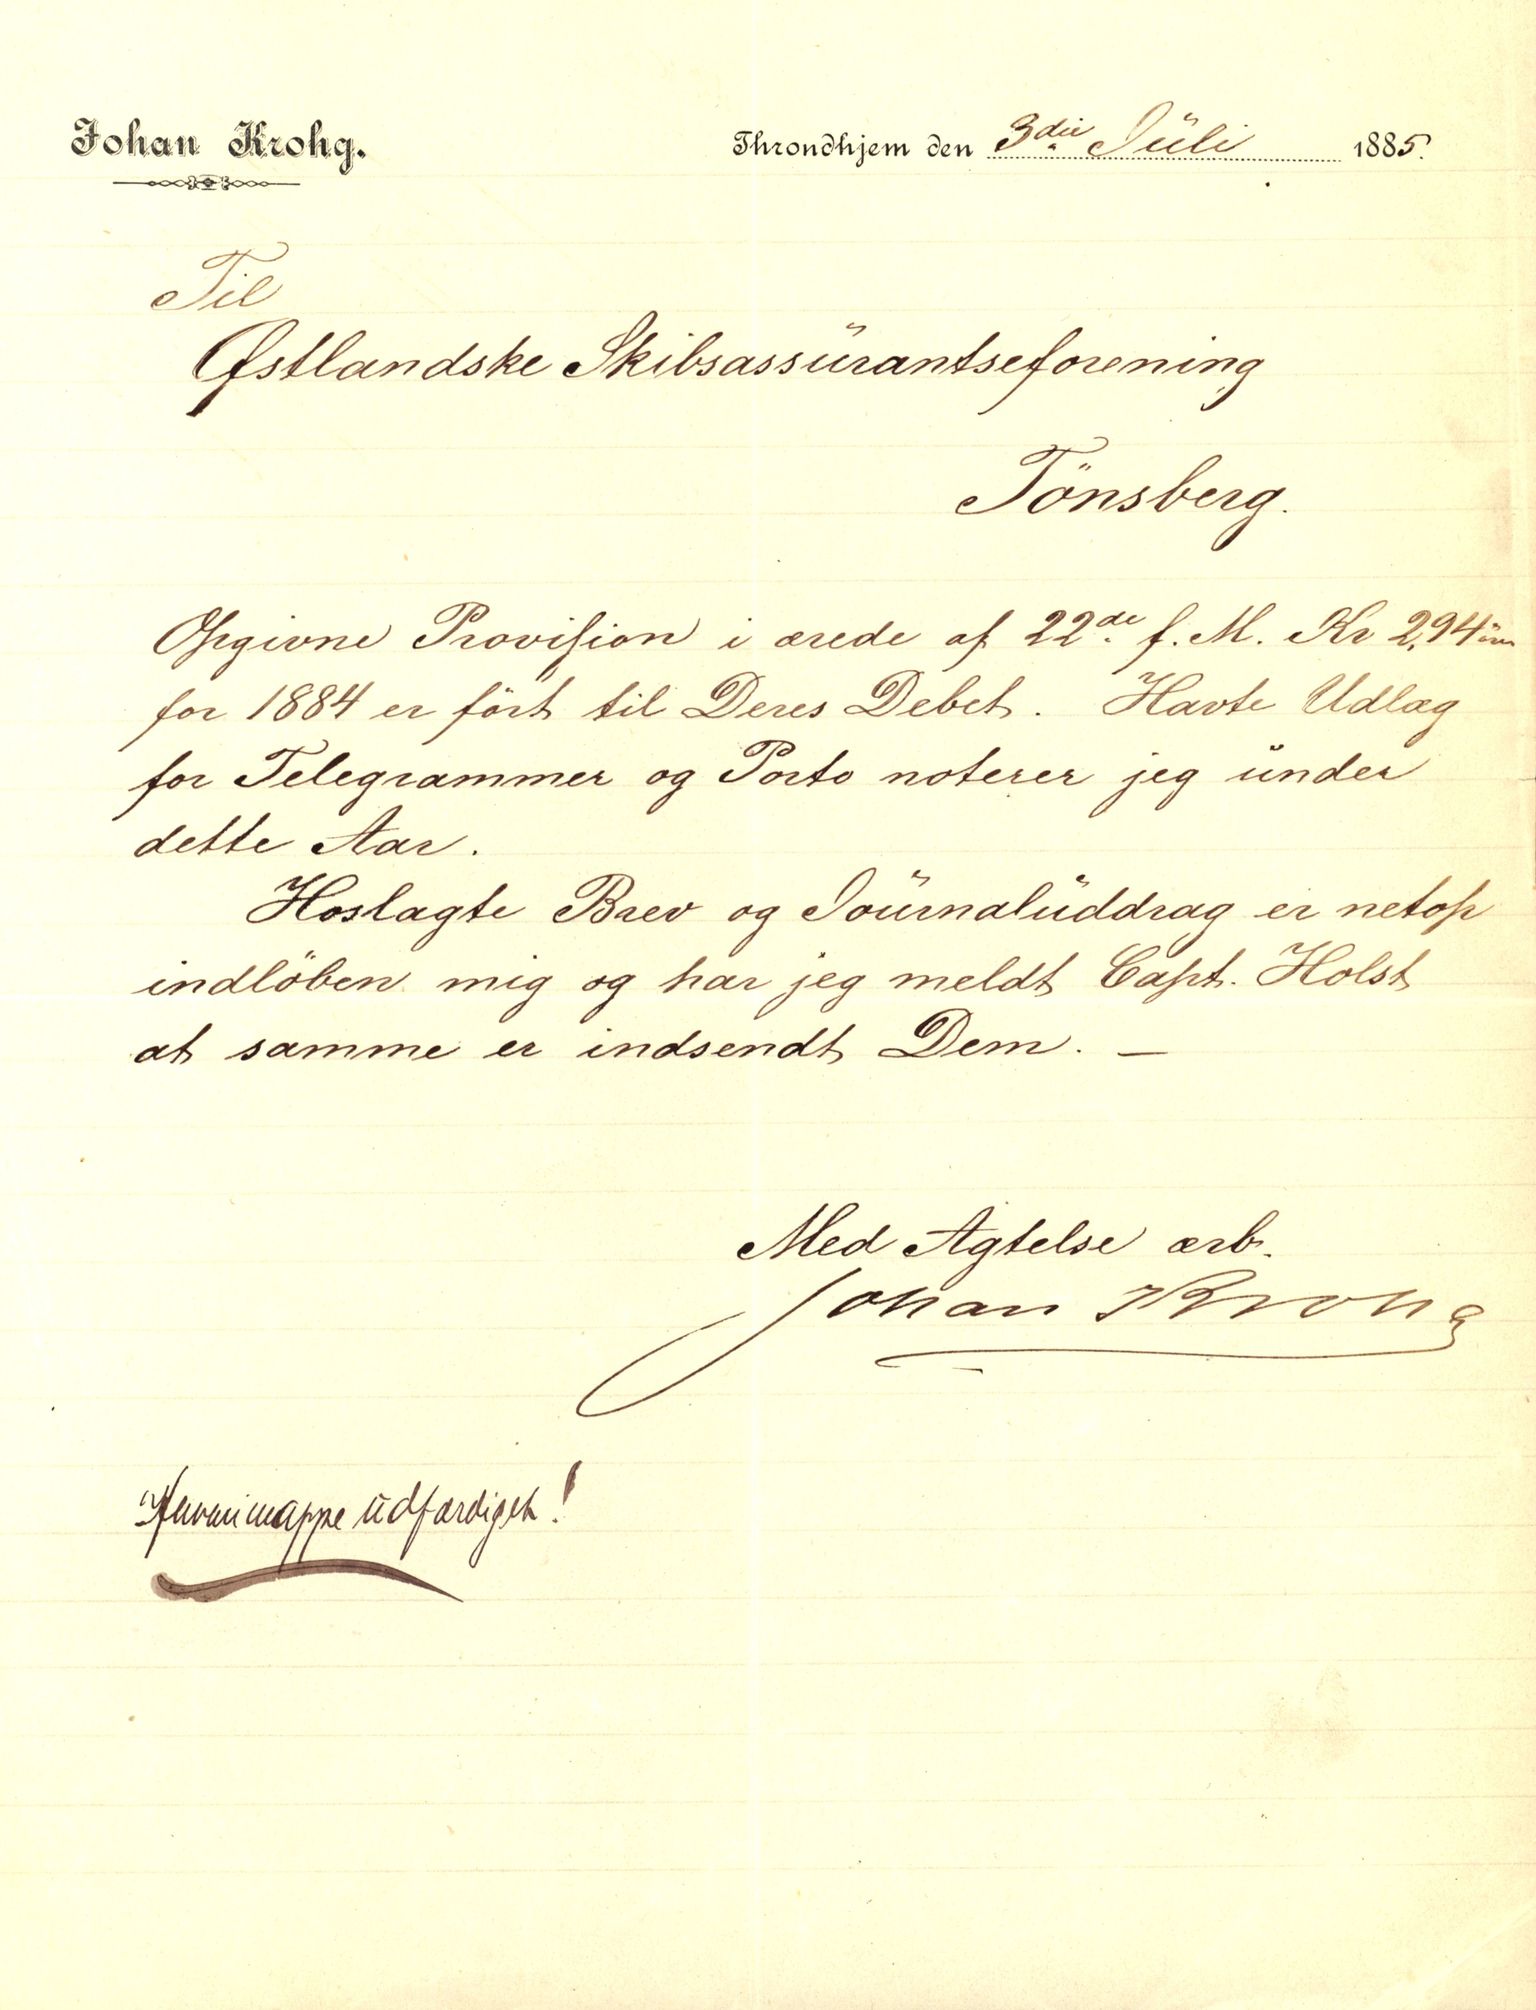 Johan Krohg.
Throndhjem den 3die Jüli 1885.
Til
Østlandske Skibsassürantseforening
Tönsberg.
Opgivne Provision i ærede af 22de f. M. Kr 2,94 öre
for 1884 er fört til Deres Debet. Havte Udlæg
for Telegrammer og Porto noterer jeg ünder
dette Aar.
Hoslagte Brev og Joürnalüddrag er netop
indlöben mig og har jeg meldt Capt. Holst
at samme er indsendt Dem. —
Med Agtelse ærb.
Johan Krohg
Havarimappe üdfærdiget!